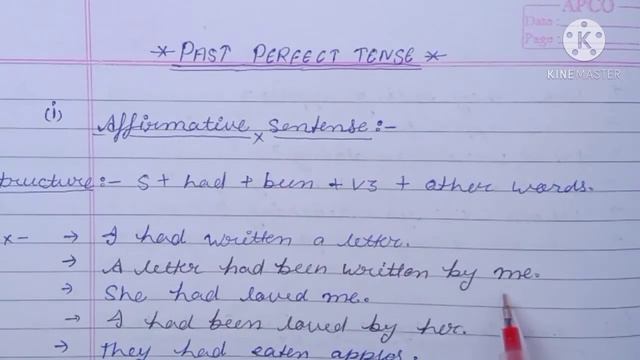 APCO
Date:
Page:
K
KINEMASTER
* PAST PERFECT TENSE *
(i) Affirmative x Sentense:-
tructure:- S + had + been + V3 + other words.
x- → I had written a letter.
→ A letter had been written by me.
→ She had loved me.
→ I had been loved by her.
→ they had eaten apples.